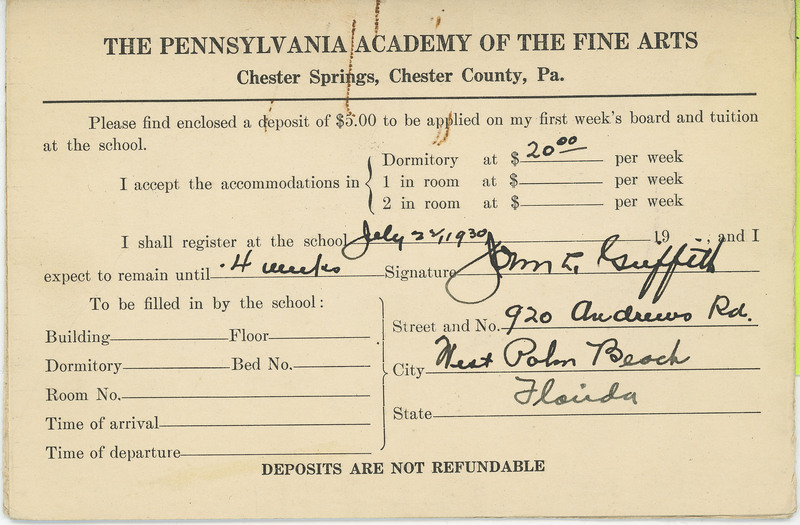 THE PENNSYLVANIA ACADEMY OF THE FINE ARTS
Chester Springs, Chester County, Pa.
Please find enclosed a deposit of $5.00 to be applied on my first week's board and tuition
at the school.
Dormitory at $ 20 00 per week
I accept the accommodations in { 1 in room at $ per week
2 in room at $ per week
I shall register at the school July 22, 1930 19 , and I
expect to remain until 4 weeks Signature John E. Griffith
To be filled in by the school:
Street and No. 920 Andrews Rd.
Building Floor
City West Palm Beach
Dormitory Bed No.
State Florida
Room No.
Time of arrival
Time of departure
DEPOSITS ARE NOT REFUNDABLE